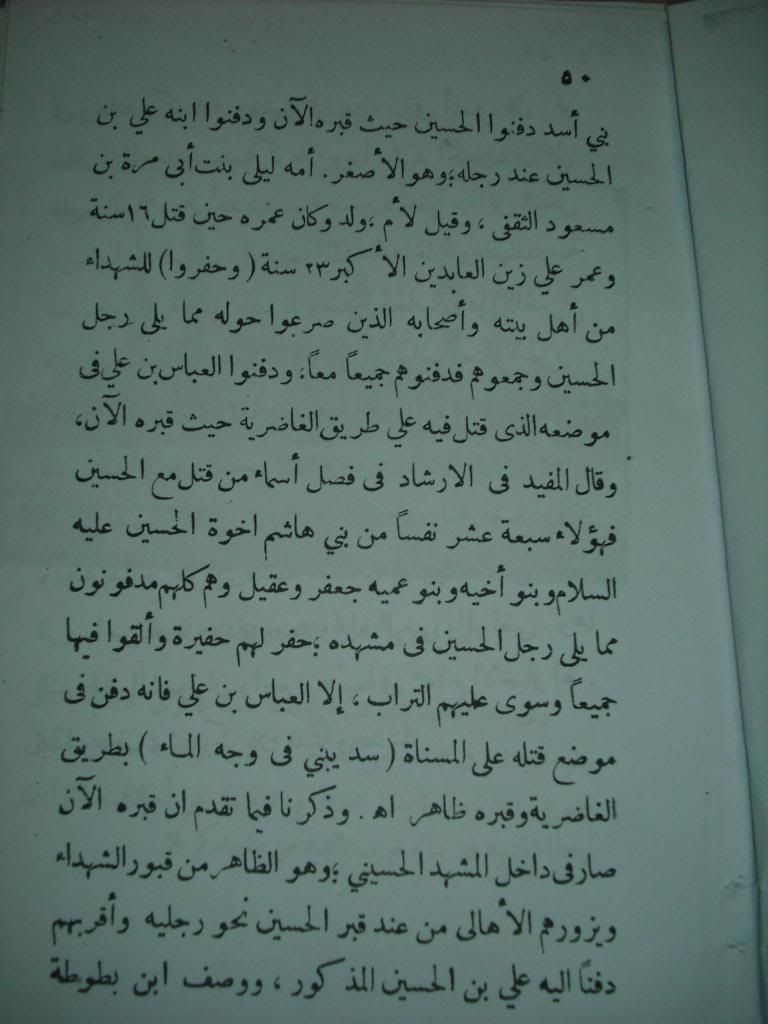 ٥٠
بني أسد دفنوا الحسين حيث قبره الآن ودفنوا ابنه علي بن
الحسين عند رجله؛وهو الأصغر. أمه ليلى بنت أبى مرة بن
مسعود الثقفى ، وقيل لأم ؛ولد وكان عمره حين قتل ١٦سنة
وعمر علي زين العابدين الأكبر ٢٣ سنة ( وحفروا) للشهداء
من أهل بيته وأصحابه الذين صرعوا حوله مما يلى رجل
الحسين وجمعوهم فدفنوهم جميعاً معاً، ودفنوا العباس بن علي فى
موضعه الذى قتل فيه علي طريق الغاضرية حيث قبره الآن،
وقال المفيد فى الارشاد فى فصل أسماء من قتل مع الحسين
فهؤلاء سبعة عشر نفساً من بني هاشم اخوة الحسين عليه
السلام وبنو أخيه وبنو عميه جعفر وعقيل وهم كلهم مدفونون
مما يلى رجل الحسين فى مشهده ؛حفر لهم حفيرة وألقوا فيها
جميعاً وسوى عليهم التراب ، إلا العباس بن علي فانه دفن فى
موضع قتله على المسناة ( سد يبني فى وجه الماء ) بطريق
الغاضرية وقبره ظاهر اه. وذكرنا فيما تقدم ان قبره الآن
صار فى داخل المشهد الحسيني ؛وهو الظاهر من قبور الشهداء
ويزورهم الأهالى من عند قبر الحسين نحو رجليه وأقربهم
دفنًا اليه علي بن الحسين المذكور ، ووصف ابن بطوطة